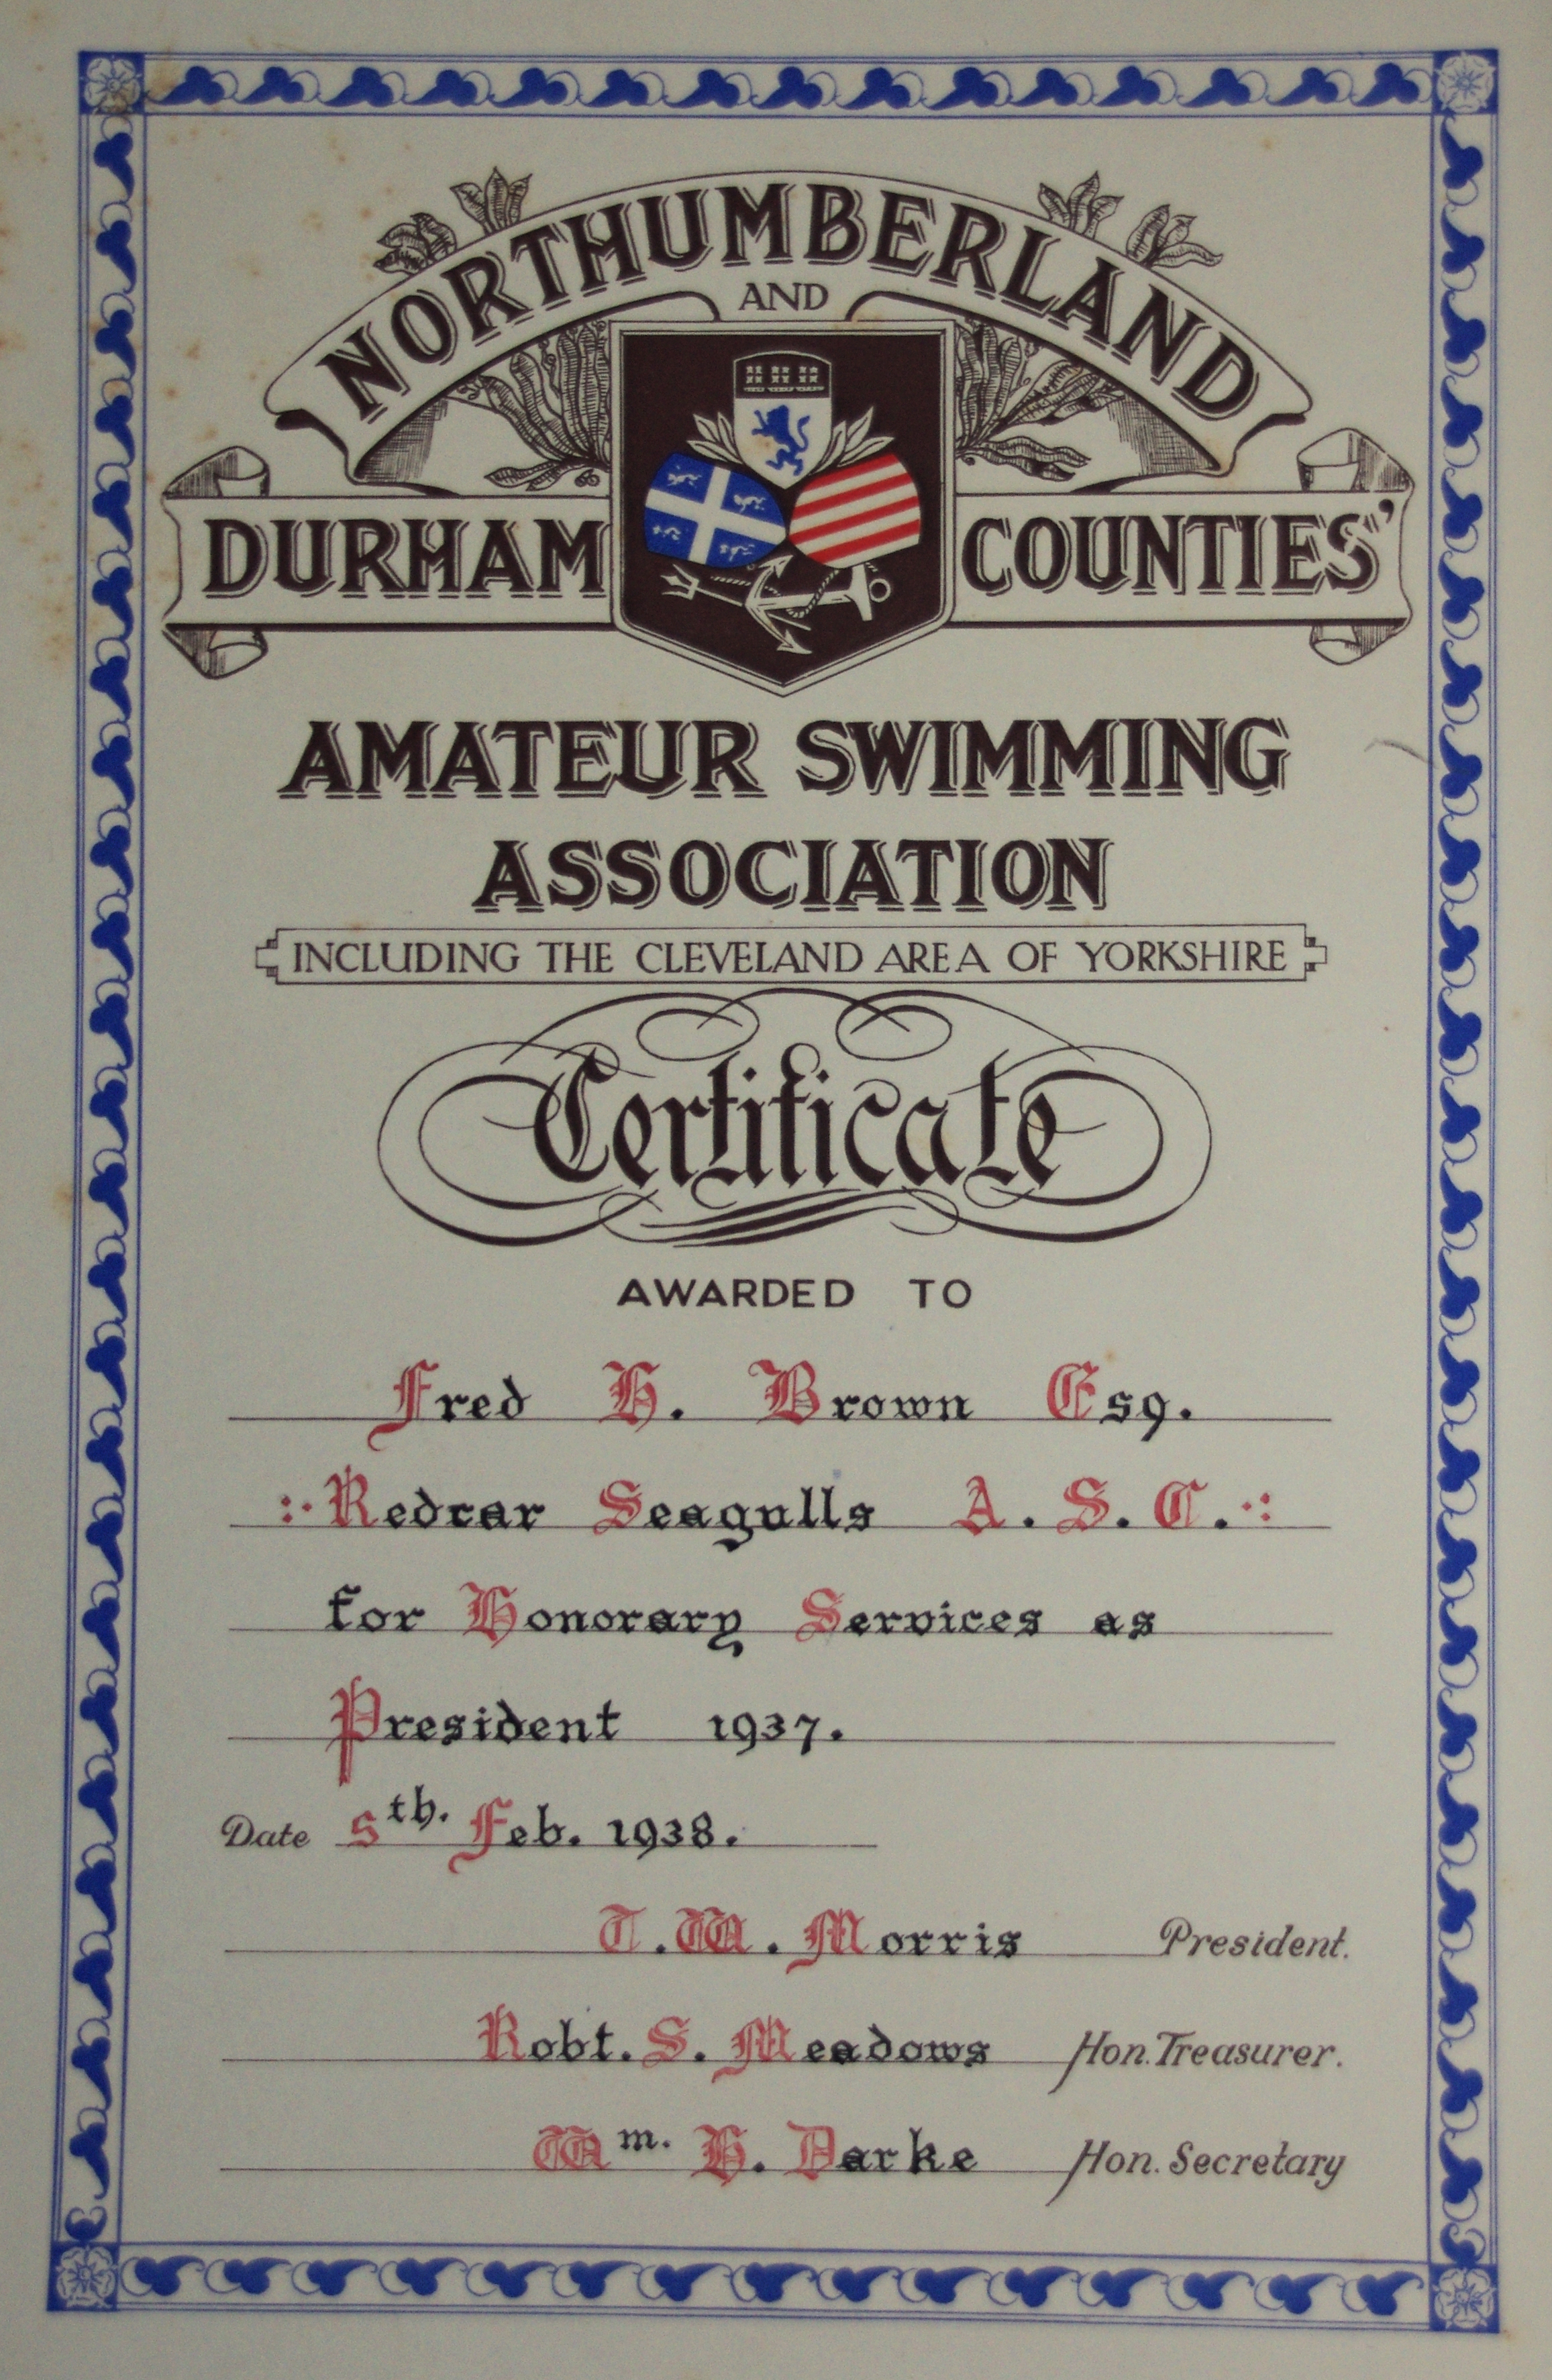 NORTHUMBERLAND
AND
DURHAM COUNTIES'
AMATEUR SWIMMING
ASSOCIATION
INCLUDING THE CLEVELAND AREA OF YORKSHIRE
Certificate
AWARDED TO
Fred H. Brown Esq.
Redcar Seagulls A. S. C.
for Honorary Services as
President 1937.
Date 5th. Feb. 1938.
T. W. Morris President.
Robt. S. Meadows Hon. Treasurer.
Wm. H. Darke Hon. Secretary